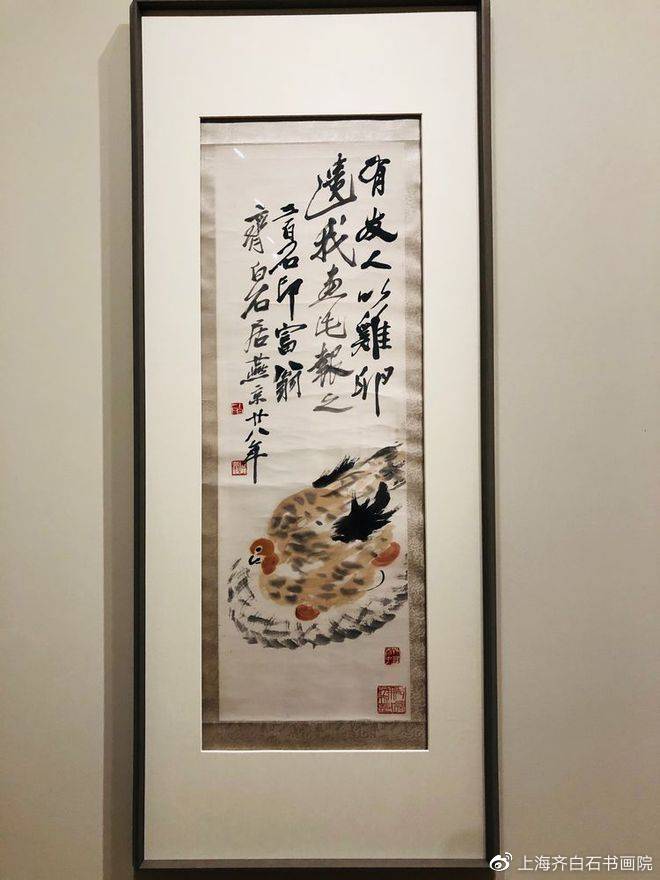 有友人以雞卵
遺我画此報之
三百石印富翁
齊白石居燕京廿八年
上海齐白石书画院